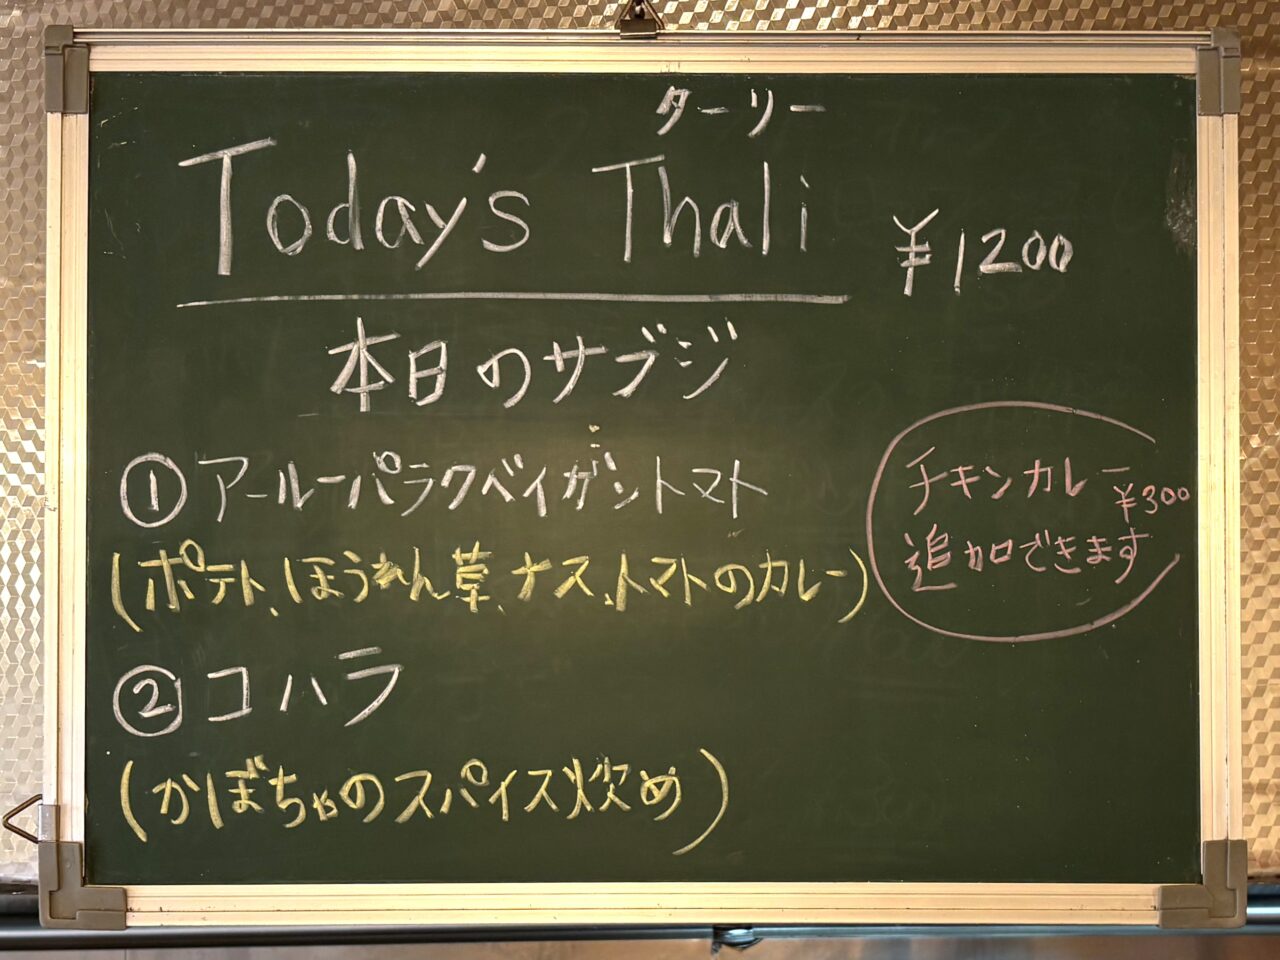 ターリー
Today's Thali
¥1200
本日のサブジ
① アールーパラクベイガントマト
(ポテト、ほうれん草、ナス、トマトのカレー)
チキンカレー
¥300
追加できます
② コハラ
(かぼちゃのスパイス炊め)